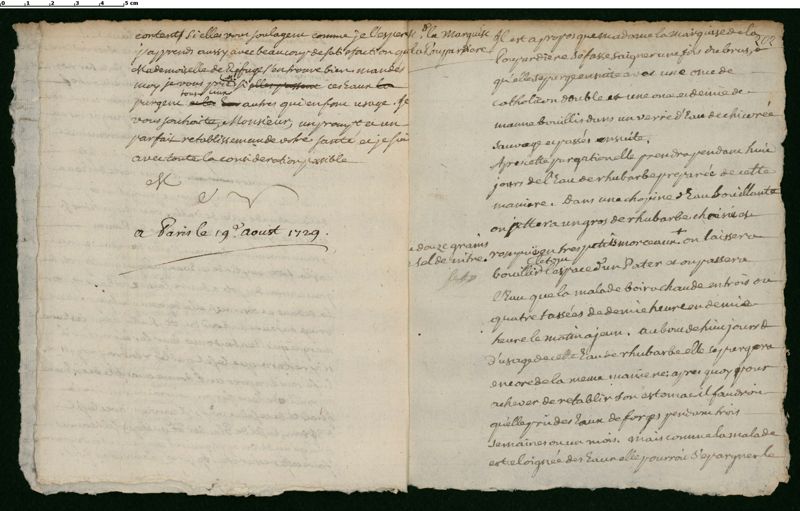 contents si elles vous soulagent comme je l'espere
j'apprens aussy avec beaucoup de satisfaction que
Mademoiselle de s'en trouve bien mandes
moy je vous prie si ces Eaux
purgent tous ceux autres qui en font usage. Je
vous souhaite, Monsieur, un prompt et un
parfait retablissement de votre santé et je suis
avec toute la consideration possible
M
a Paris le 19e. aoust 1729.
Me la Marquise
de la Poupardiere
Il est a propos que madame la marquise de la
Poupardiere se fasse saigner une fois du bras, et
qu'elle se purge ensuite avec une once de
catholicon double et une once et demie de
manne bouillis dans un verre d'Eau de chicorée
sauvage et passés ensuite.
Apres cette purgation elle prendra pendant huit
jours de l'Eau de rhubarbe preparée de cette
maniere. Dans une chopine d'Eau bouillante
on jettera un gros de rhubarbe choisie et
rompüe en tres petits morceaux + on laissera
+ douze grains
sel de nitre.
bouillir le tout l'espace d'un Pater et on passera
l'Eau que la malade boira chaude en trois ou
quatre tassées de demie heure en demie
heure le matin a jeun. au bout de huit jours
d'usage de cette Eau de rhubarbe elle se purgera
encore de la meme maniere; apres quoy pour
achever de retablir son estomac il faudroit
qu'elle prit des Eaux de forges pendant trois
semaines ou un mois. mais comme la malade
est eloignée des Eaux elle pourroit s'epargner le